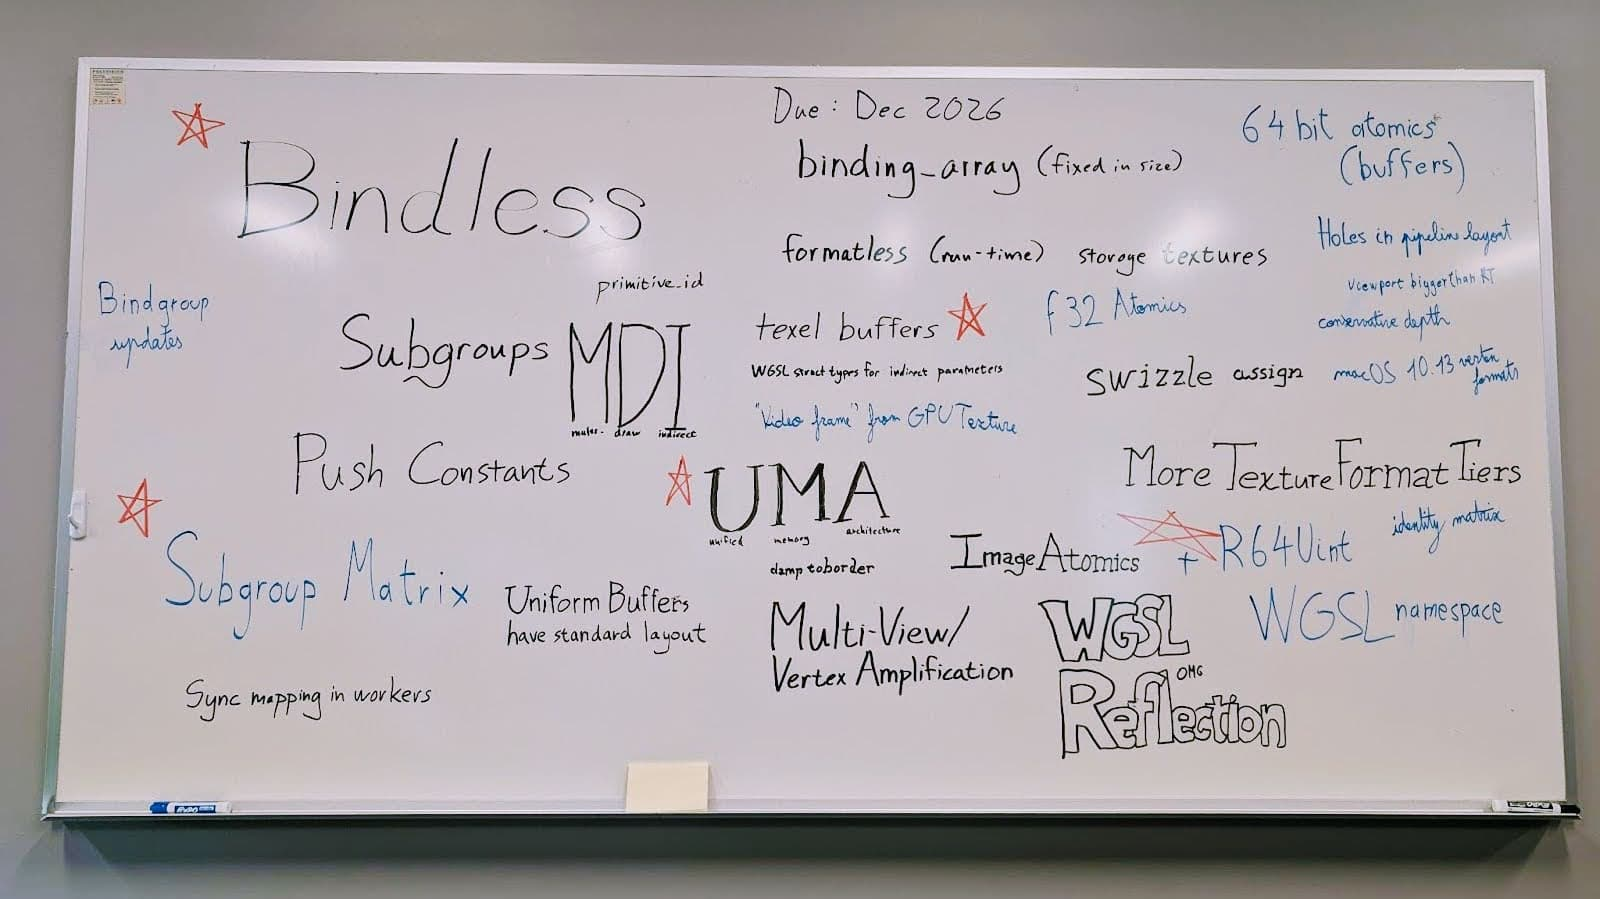 Due: Dec 2026
Bindless
binding_array (fixed in size)
64 bit atomics
(buffers)
formatless (run-time) storage textures
Holes in pipeline layout
viewport bigger than RT
conservative depth
macOS 10.13 vertex
formats
Bindgroup
updates
primitive_id
Subgroups
MDI
multi- draw indirect
texel buffers
f32 Atomics
WGSL struct types for indirect parameters
swizzle assign
"Video frame" from GPUTexture
Push Constants
UMA
unified memory architecture
More Texture Format Tiers
identity matrix
Image Atomics + R64Uint
clamp to border
Subgroup Matrix
Uniform Buffers
have standard layout
Multi-View/
Vertex Amplification
WGSL
OMG
Reflection
WGSL namespace
Sync mapping in workers
EXPO